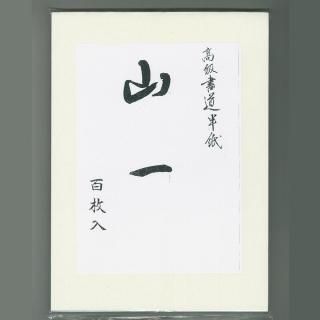 高級書道半紙
山一
百枚入